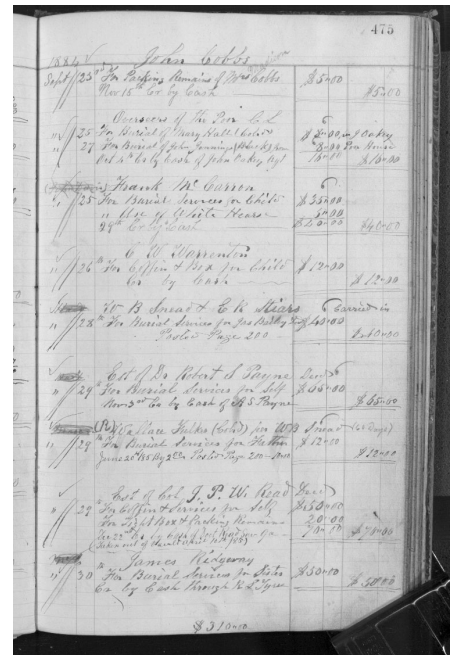 475
1884 John Cobbs
Sept 23rd For Packing Remains of Mrs Cobbs $5.00
Nov 15th Cr by Cash $5.00
Overseers of The Poor C. L.
" 25 For Burial of Mary Hall (Cold) $8.00
" 27 For Burial of John Jennings 8.00 Poor House
Oct 4th Cr by Cash of John Oakey Agt 16.00 $16.00
Frank McCarron
" 25 For Burial Services for Child $35.00
" Use of White Hearse 5.00
29th Cr by Cash $40.00 $40.00
C. W. Warrenton
" 26th For Coffin & Box for Child $12.00
Cr by Cash $12.00
W B Snead & E K Carried in
" 28th For Burial Services for $60.00
Posted Page 200 $60.00
Est of Dr Robert S Payne Decd
" 29th For Burial Services for Self $65.00
Nov 3rd Cr by Cash of R S Payne $65.00
Wallace Fulks (Cold) per WB Snead (60 Days)
" 29th For Burial Services for $12.00
Posted Page 200 $12.00
Est of Col J. P. W. Read Decd
" 29 For Coffin & Services for Self $50.00
For Tight Box & Packing Remains 20.00
70.00 $70.00
James Ridgeway
" 30th For Burial Services for Sister $50.00
Cr by Cash through $50.00
$310.00